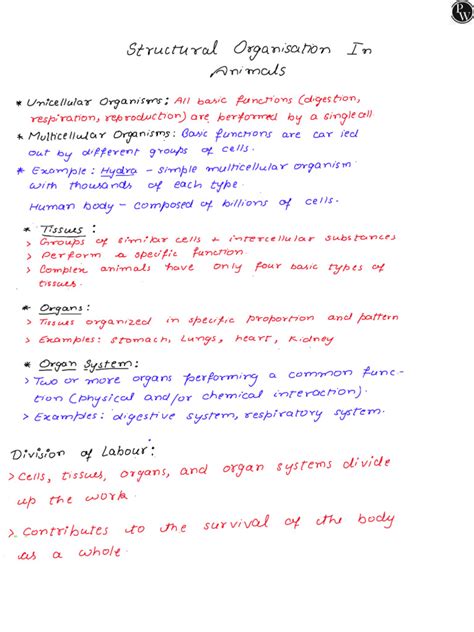 P
W
Structural Organisation In
Animals
* Unicellular Organisms: All basic functions (digestion,
respiration, reproduction) are performed by a single cell
* Multicellular Organisms: Basic functions are car ied
out by different groups of cells.
* Example: Hydra - simple multicellular organism
with thousands of each type.
Human body - composed of billions of cells.
* Tissues:
> Groups of similar cells + intercellular substances
> Perform a specific function.
> Complex animals have only four basic types of
tissues.
* Organs:
> Tissues organized in specific proportion and pattern
> Examples: Stomach, Lungs, heart, Kidney
* Organ System:
> Two or more organs performing a common func-
tion (physical and/or chemical interaction).
> Examples: digestive system, respiratory system.
Division of Labour:
> Cells, tissues, organs, and organ systems divide
up the work.
> Contributes to the survival of the body
as a whole.